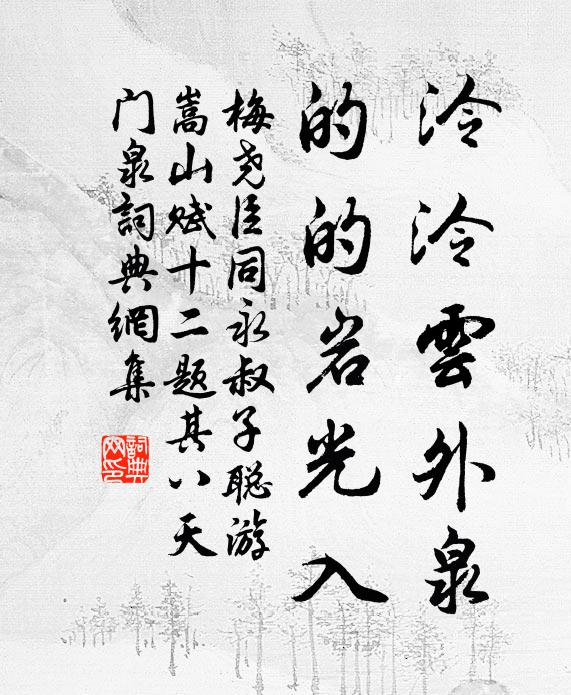 泠泠雲外泉
的的岩光入
梅尧臣同永叔子聪游
嵩山赋十二题其八天
门泉詞典網集
詞典網印